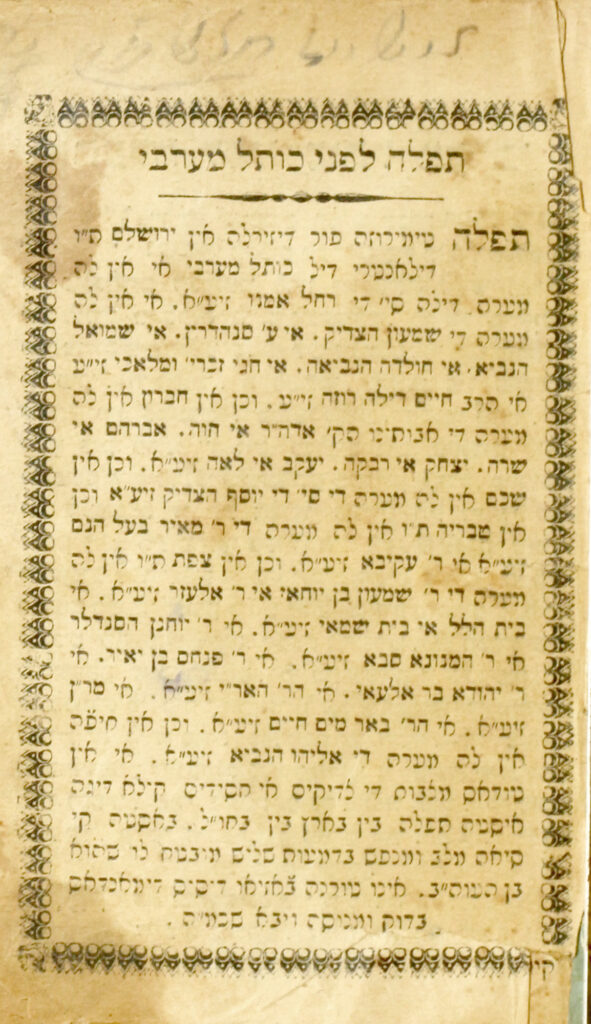 תפלה לפני כותל מערבי
תפלה טימירוזה פור דיזירלה אין ירושלם ת"ו
דילאנטרי דיל כותל מערבי אי אין לה
מערת דילה סי' די רחל אמנו זיע"א. אי אין לה
מערת די שמעון הצדיק. אי ע' סנהדרין. אי שמואל
הנביא. אי חולדה הנביאה. אי חגי זכרי' ומלאכי זי"ע
אי הרב חיים דילה רוזה זי"ע. וכן אין חברון אין לה
מערת די אבותינו הק' אדה"ר אי חוה. אברהם אי
שרה. יצחק אי רבקה. יעקב אי לאה זיע"א. וכן אין
שכם אין לה מערת די סי' די יוסף הצדיק זיע"א וכן
אין טבריה ת"ו אין לה מערת די ר' מאיר בעל הנס
זיע"א אי ר' עקיבא זיע"א. וכן אין צפת ת"ו אין לה
מערת די ר' שמעון בן יוחאי אי ר' אלעזר זיע"א. אי
בית הלל אי בית שמאי זיע"א. אי ר' יוחנן הסנדלר
אי ר' המנונא סבא זיע"א. אי ר' פנחס בן יאיר. אי
ר' יהודא בר אלעאי. אי הר' האר"י זיע"א. אי מר"ן
זיע"א. אי הר' באר מים חיים זיע"א. וכן אין חיפה
אין לה מערת די אליהו הנביא זיע"א. אי אין
טודאס מצבות די צדיקים אי חסידים קילא דיגה
איסטה תפלה בין בארץ בין בחו"ל. באסטה קי
סיאה מלב ומנפש בדמעות שליש מובטח לו שהוא
בן העוה"ב. אינו טורנה ב'אזיאו דיסיס דימאנדאס
בדוק ומנוסה ויבא שכמ"ה.